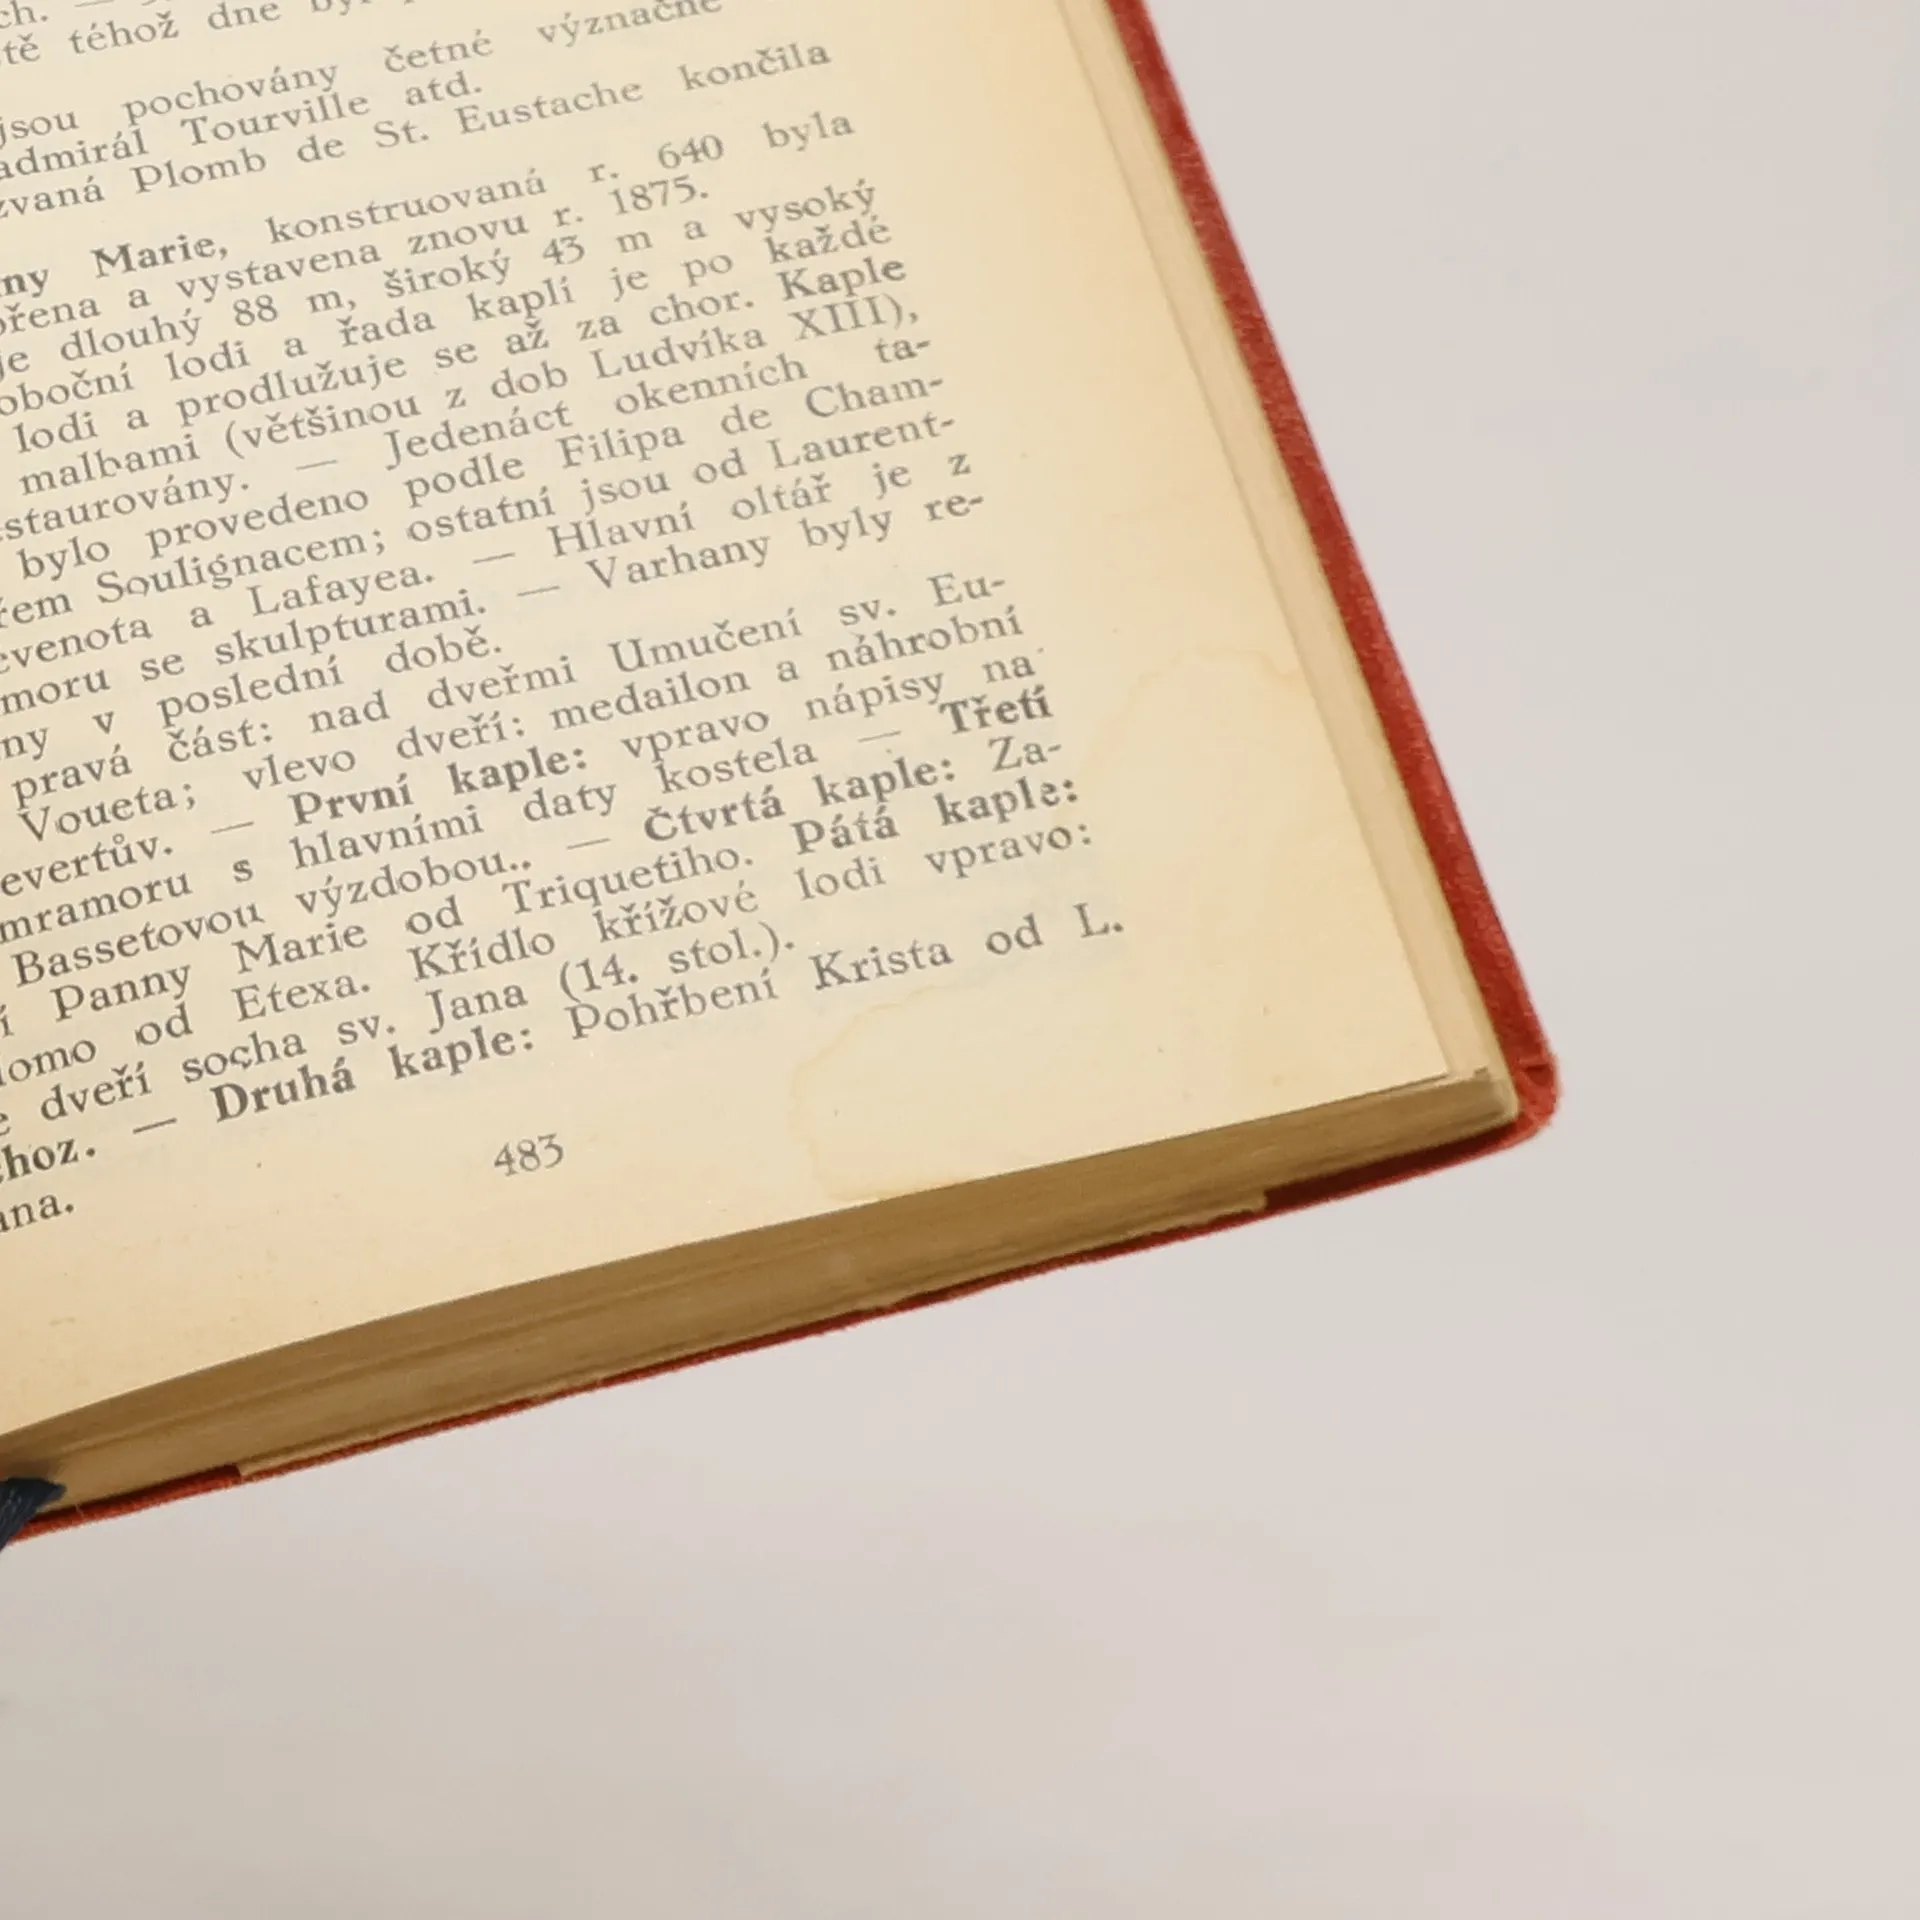 ch. —
téhož dne
jsou pochovány četné význačné
admirál Tourville atd.
zvaná Plomb de St. Eustache končila
Marie, konstruovaná r. 640 byla
a vystavena znovu r. 1875.
je dlouhý 88 m, široký 43 m a vysoký
lodi a řada kaplí je po každé
lodi a prodlužuje se až za chor. Kaple
malbami (většinou z dob Ludvíka XIII),
— Jedenáct okenních ta-
bylo provedeno podle Filipa de Cham-
Soulignacem; ostatní jsou od Laurent-
a Lafayea. — Hlavní oltář je z
se skulpturami. — Varhany byly re-
v poslední době.
pravá část: nad dveřmi Umučení sv. Eu-
Voueta; vlevo dveří: medailon a náhrobní
— První kaple: vpravo nápisy na
mramoru s hlavními daty kostela — Třetí
Bassetovou výzdobou.. — Čtvrtá kaple: Za-
Panny Marie od Triquetiho. Pátá kaple:
od Etexa. Křídlo křížové lodi vpravo:
dveří socha sv. Jana (14. stol.).
— Druhá kaple: Pohřbení Krista od L.
483